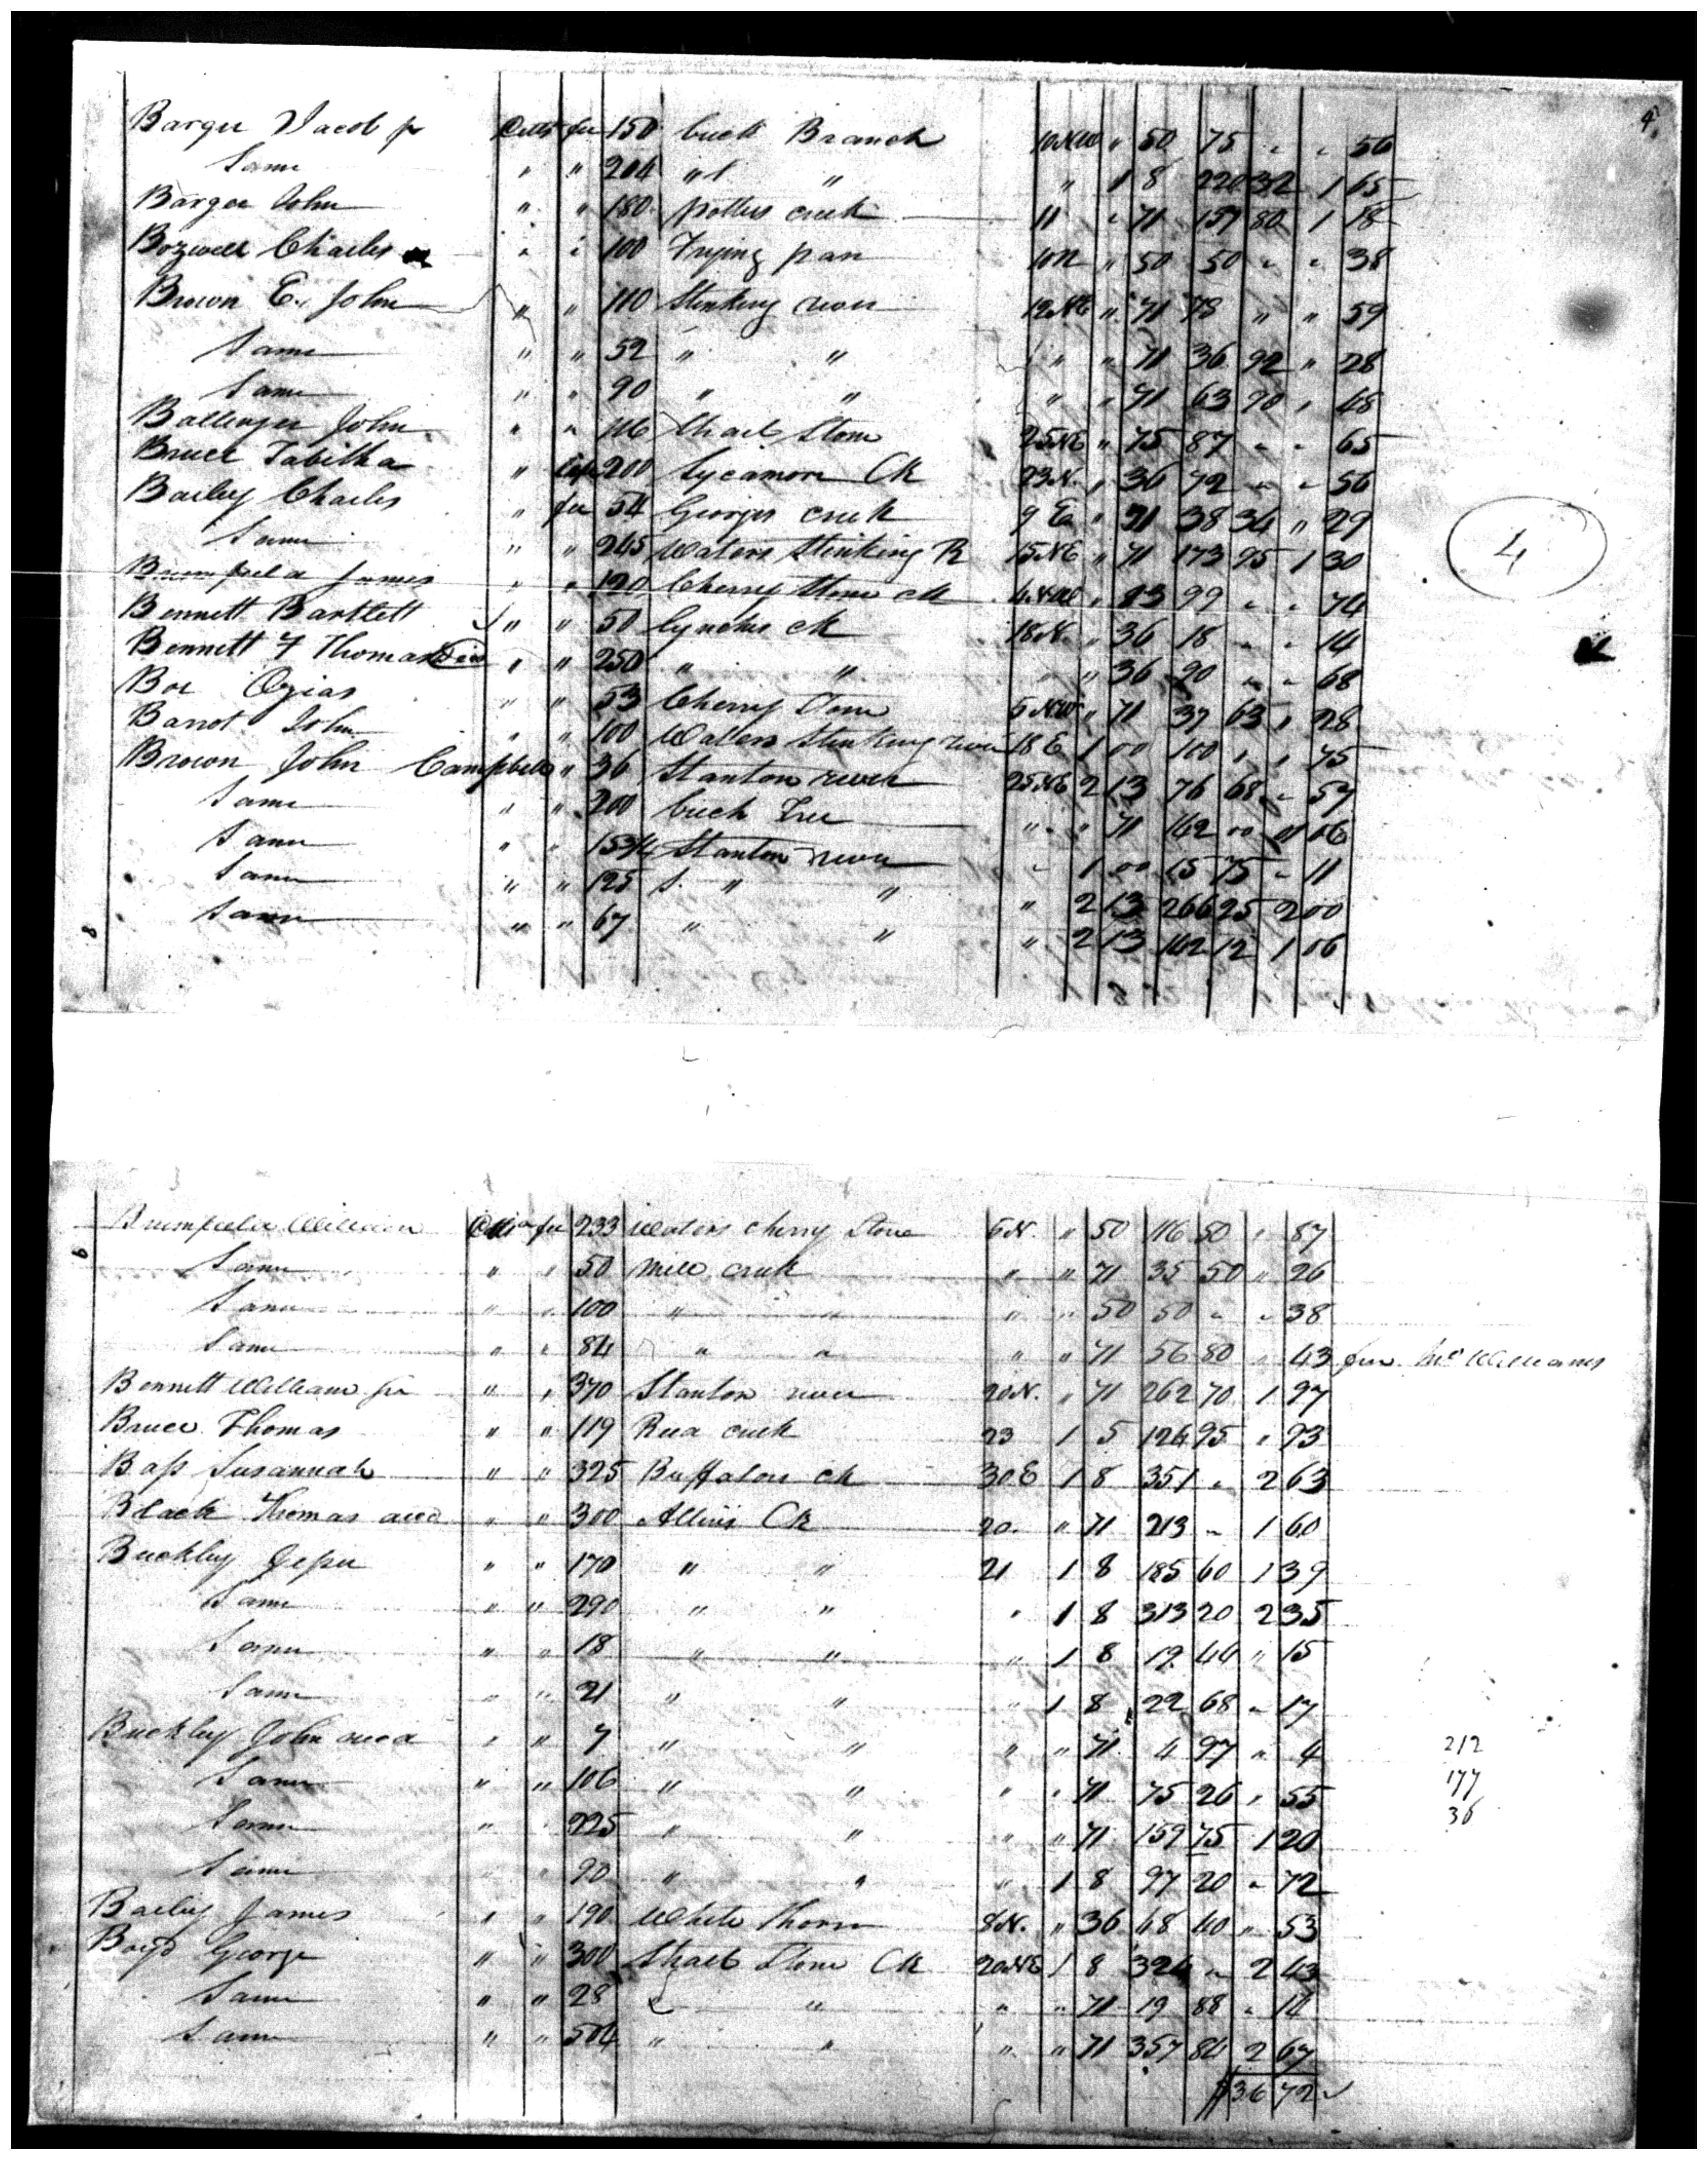 4
Barger Jacob jr Pitts fee 150 buck Branch 10NW " 50 75 " " 56
Same " " 204 " " " 1 8 220 32 1 65
Barger John " " 180 potters creek 11 " 71 157 80 1 18
Bozwell Charles " " 100 Frying pan 10N " 50 50 " " 38
Brown E. John " " 110 Stinking river 12NE " 71 78 " " 59
Same " " 52 " " " " 71 36 92 " 28
Same " " 90 " " " " 71 63 90 " 48
Ballinger John " " 116 Strait Stone 25NE " 75 87 " " 65
Bruce Tabitha " life 200 Sycamore Ck 23N. " 36 72 " " 56
Bailey Charles " fee 54 Georges creek 9 E " 71 38 34 " 29
4
Same " " 245 Waters Stinking R 15NE " 71 173 95 1 30
Brumfield James " " 120 Cherry Stone ck 4NW " 83 99 " " 74
Bennett Bartlett " " 50 Lynches ck 18N. " 36 18 " " 14
Bennett F Thomas " " 250 " " " " 36 90 " " 68
Boe Ozias " " 53 Cherry Stone 5NW " 71 37 63 " 28
Barrot John " " 100 Waters Stinking river 18 E 1 00 100 " " 75
Brown John Campbell " 36 Stanton river 25NE 2 13 76 68 " 57
Same " " 200 buck Tree " " 71 142 00 1 06
Same " " 15 3/4 Stanton river " 1 00 15 75 " 11
Same " " 125 S. " " " 2 13 266 25 2 00
Same " " 67 " " " 2 13 142 12 1 06
8
Brumfield William fee 233 Waters cherry Stone 6N. " 50 116 50 " 87
9
Same " " 50 Mill creek " " 71 35 50 " 26
Same " " 100 " " " " 50 50 " " 38
Same " " 84 " " " " 71 56 80 " 43 Williams
Bennett William jr " " 370 Stanton river 20N. " 71 262 70 1 97
Bruce Thomas " " 119 Reed creek 23 1 5 124 95 " 93
Bass Susannah " " 325 Buffaloe ck 30E 1 8 351 " 2 63
Black Thomas decd " " 300 Allins Ck 20. " 71 213 " 1 60
Buckley Jesse " " 170 " " 21 1 8 185 60 1 39
Same " " 290 " " " 1 8 313 20 2 35
Same " " 18 " " " 1 8 19 44 " 15
Same " " 21 " " " 1 8 22 68 " 17
Buckley John decd " " 7 " " " " 71 4 97 " 4 212
Same " " 106 " " " " 71 75 26 " 55 177
Same " " 225 " " " " 71 159 75 1 20 36
Same " " 90 " " " 1 8 97 20 " 72
Bailey James " " 190 White Thorn 8N. " 36 68 40 " 53
Boyd George " " 300 Strait Stone Ck 20NE 1 8 324 " 2 43
Same " " 28 " " " " 71 19 88 " 14
Same " " 504 " " " " 71 357 84 2 67
$36 72